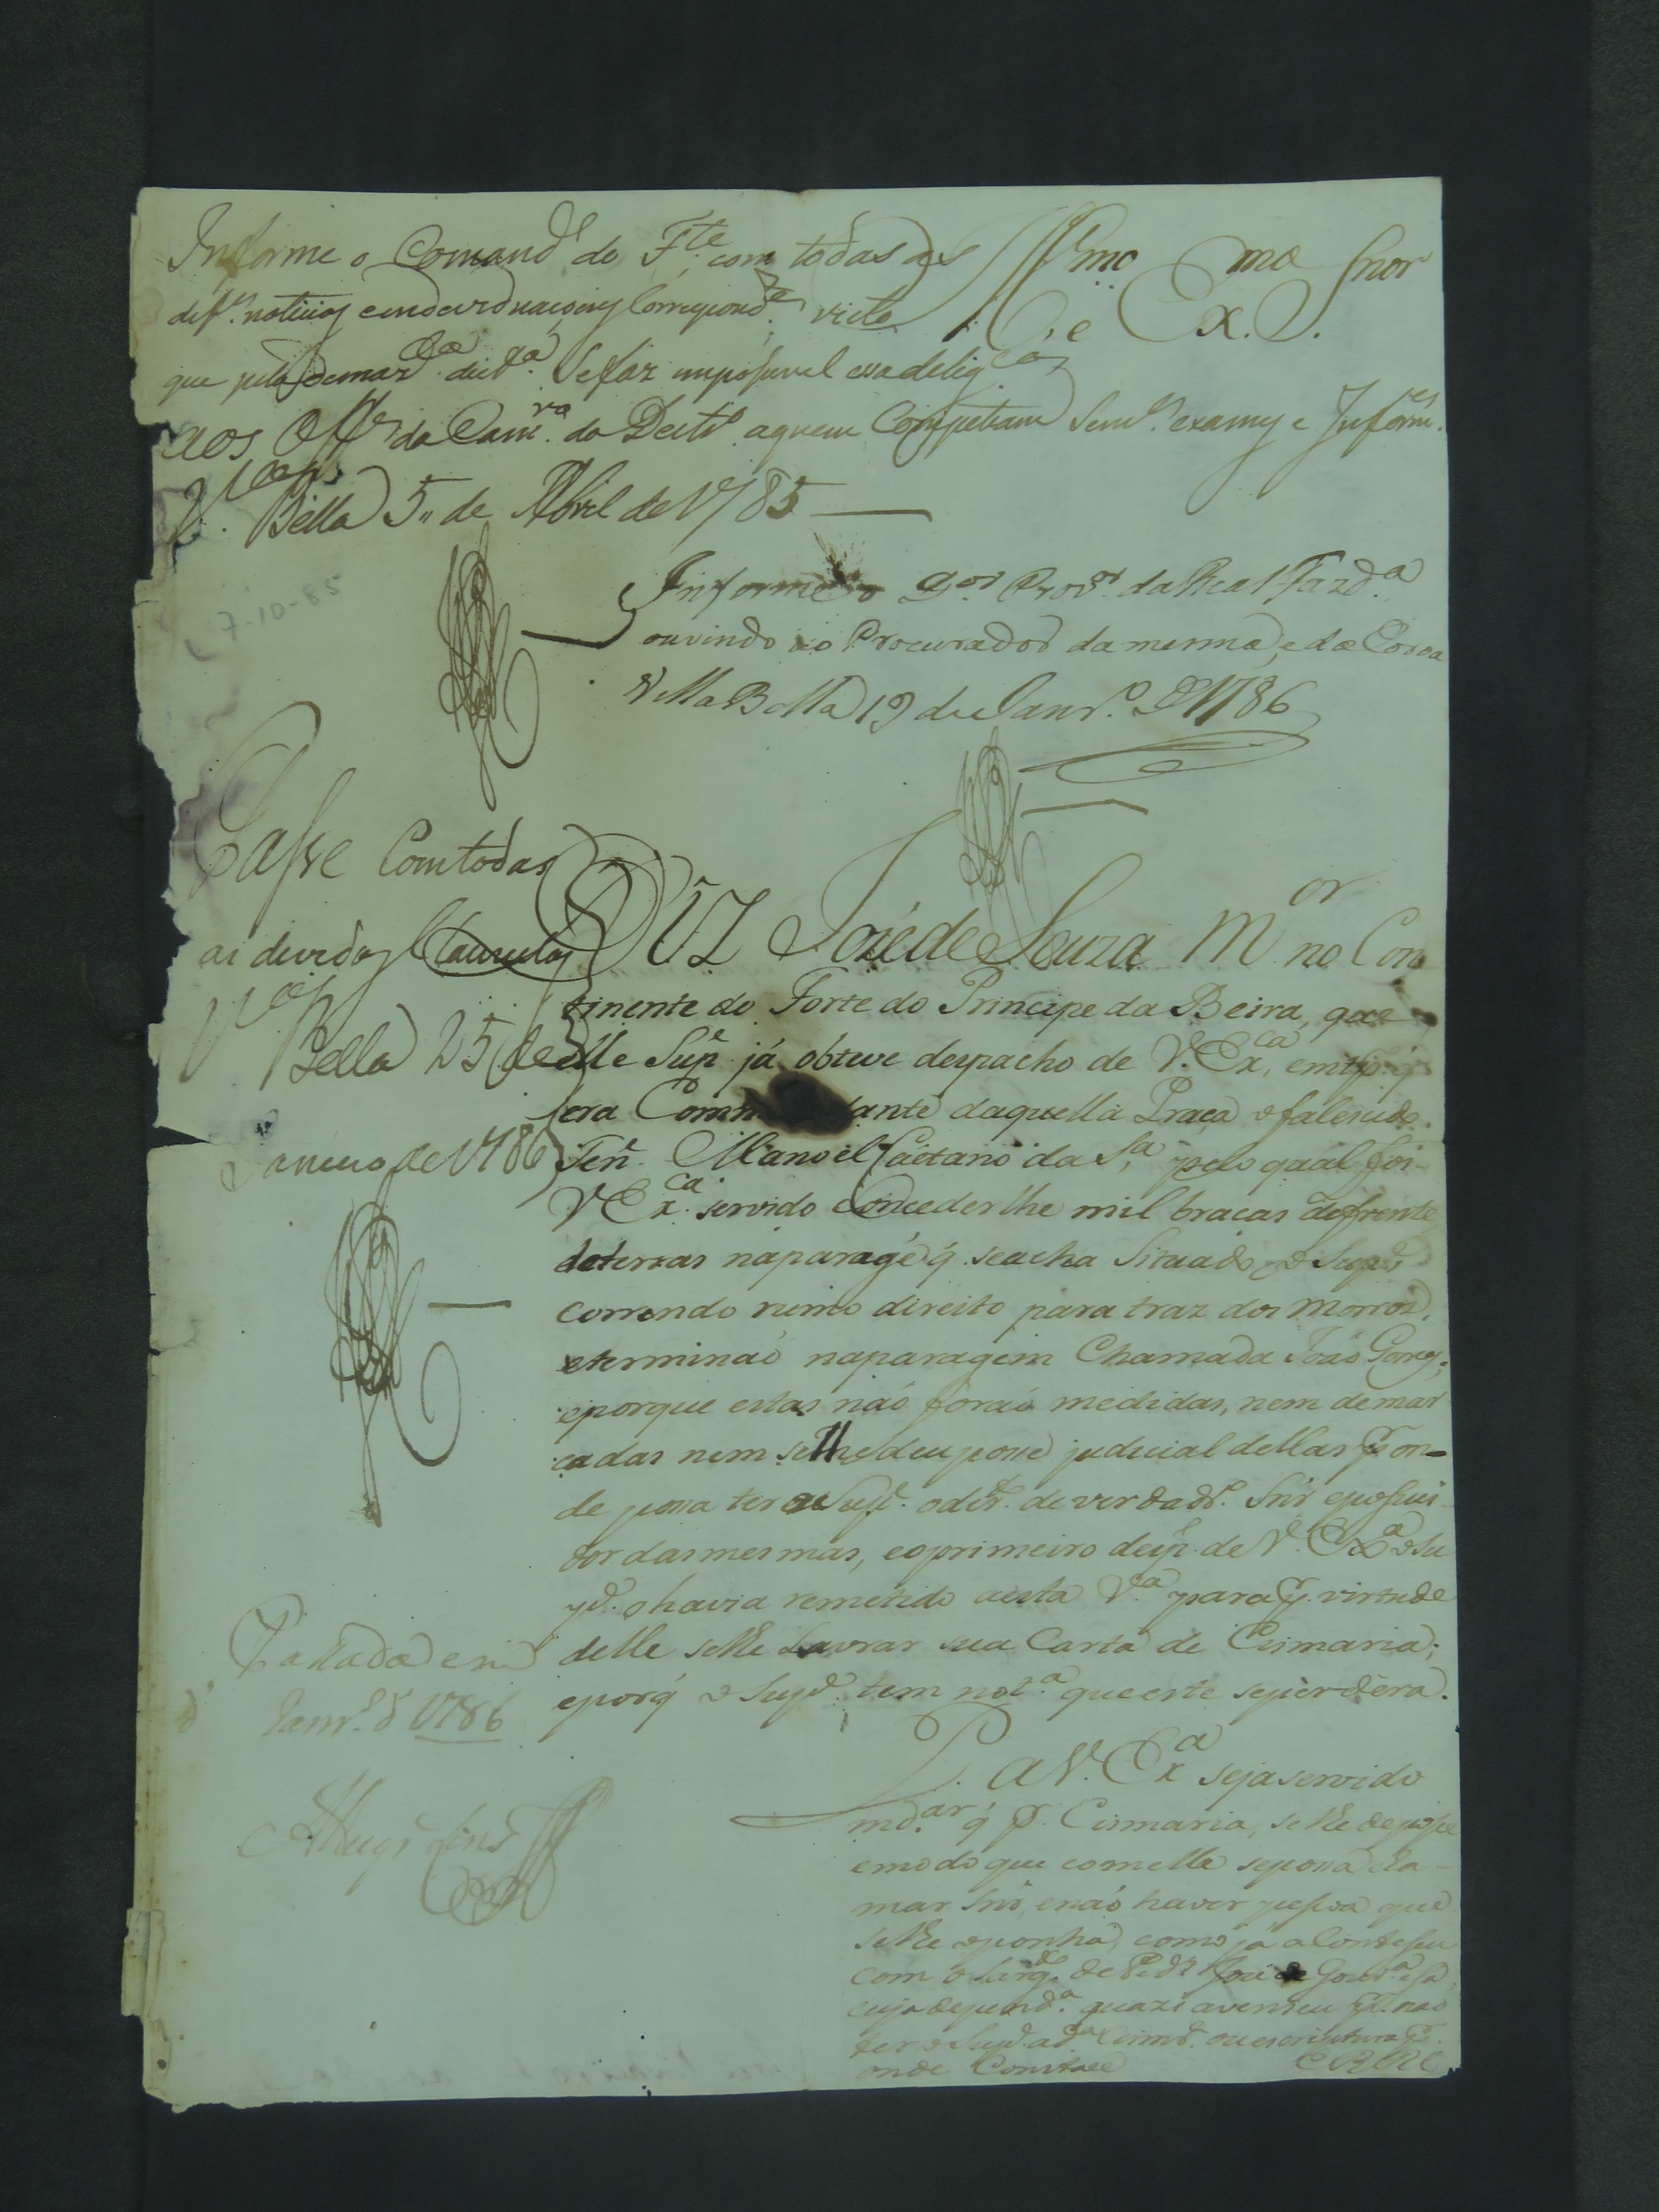 Informe o Comand.e do F.te com todas as
notiçias e endeviduaçoins Correspond.es visto
que pela demaz.da dist.a Se faz impossivel essa delig.ca
aos Off.es da Cam.ra do Destr.o aquem Competiam Sem.es exames e Inform.es
V.a Bella 5,, de Abril de 1785
Ill.mo e Ex.mo Snor
7-10-85
Informe o D.or Prov.or da Real Fazd.a
ouvindo ao Procurador da mesma, e da Coroa
Villa Bella 19 de Janr.o D 1786
Passe Com todas
as devidas Clauzulas
V.a Bella 25 de
Janeiro de 1786
DIZ Joze de Souza M.or no Con
tinente do Forte do Principe da Beira, que
elle Sup.e já obteve despacho de V. Ex.ca, em tp.o q̃
era Comm dante daquella Praça o falescido
Ten.e Manoel Caetano da S.a, pelo qual foi
V Ex.ca servido Concederlhe mil braças de frente
de terras na paragẽ q̃ se acha Situado o Sup.e
correndo rumo direito para traz dos morros,
e terminaõ na paragem Chamada Joaõ Gomes;
e porque estas naõ foraõ medidas, nem demar
cadas nem se lhe deu posse judicial dellas p.r on=
de possa ter o Sup.e o dir.to de verdadr.o Snr̃ e possui
dor das mesmas, e o primeiro desp.o de V. Ex.a o Su
pe. o havia remetido a esta V.a para p.r virtude
delle se lhe Lavrar sua Carta de Cismaria;
e porq̃ o Sup.e tem not.a que este se perdera.
Passada em
Janr.o d 1786
P. A V. Ex.a seja servido
md.ar q̃ p.r Cismaria, se lhe de posse
e modo que com ella se possa cla-
mar Snr̃, e naõ haver pessoa que
se lhe oponha, como ja aContesseu
com o Sarg.to de Ped.s Joze de Gouv.a
cuja depend.a quazi a venseu p.r naõ
ter o Sup.e a d.a Cism.a ou escriutura p.r
onde Constace E R M